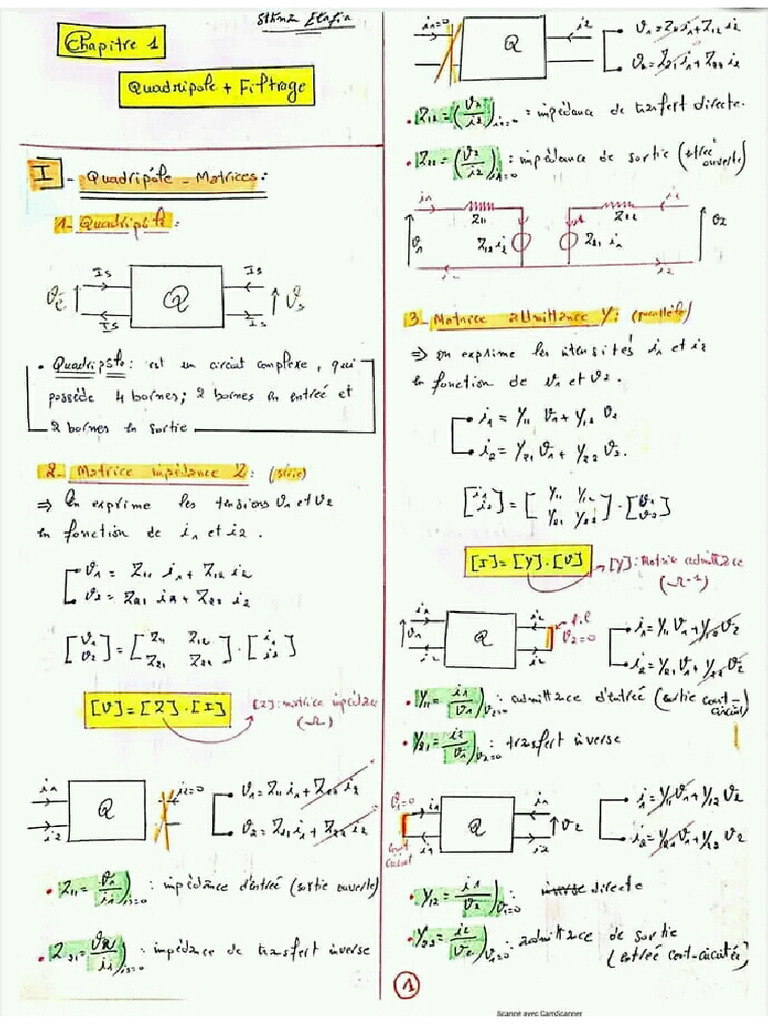 Chapitre 1
Quadripole + Filtrage
I - Quadripôle - Matrices:
1- Quadripôle:
Is
Is
Q
Ve
Vs
Is
Is
• Quadripôle: est un circuit complexe, qui
possède 4 bornes; 2 bornes en entreé et
2 bornes en sortie
2- Matrice impédance Z: (série)
⇒ On exprime les tensions V1 et V2
en fonction de i1 et i2.
V1 = Z11 i1 + Z12 i2
V2 = Z21 i1 + Z22 i2
[V1 V2] = [Z11 Z12 Z21 Z22] . [i1 i2]
[V] = [Z] . [I]
[Z]: matrice impédance
(Ω)
i1
i2
Q
i2=0
V1 = Z11 i1 + Z22 i2
V2 = Z21 i1 + Z22 i2
• Z11 = V1/i1)i2=0 : impédance d'entreé (sortie ouverte)
• Z21 = V2/i1)i2=0 : impédance de transfert inverse
i1=0
Q
i2
V1 = Z11 i1 + Z12 i2
V2 = Z21 i1 + Z22 i2
• Z12 = (V1/i2)i1=0 : impédance de tranfert directe.
• Z22 = (V2/i2)i1=0 : impédance de sortie (entreé
ouverte)
i1
Z11
Z22
i2
V1
Z12 i2
Z21 i1
V2
i1
i2
3- Matrice admittance Y: (parallèle)
⇒ on exprime les intensités i1 et i2
en fonction de V1 et V2.
i1 = Y11 V1 + Y12 V2
i2 = Y21 V1 + Y22 V2.
[i1 i2] = [Y11 Y12 Y21 Y22] . [V1 V2]
[I] = [Y] . [V]
[Y]: Matrice admittance
(Ω-1)
i1
V1
i2
Q
i2
i2
V2=0
i1 = Y11 V1 + Y12 V2
i2 = Y21 V1 + Y22 V2
• Y11 = i1/V1)V2=0 : admittance d'entreé (sortie court-
circuit)
• Y21 = i2/V1)V2=0 : transfert inverse
V1=0
i1
i1
Court
circuit
Q
i1
V2
i2
i1 = Y11 V1 + Y12 V2
i2 = Y21 V1 + Y22 V2
• Y12 = i1/V2)V1=0 : inverse directe
• Y22 = i2/V2)V1=0 : admittance de sortie
(entreé cort-circuitée)
1
Scanné avec CamScanner